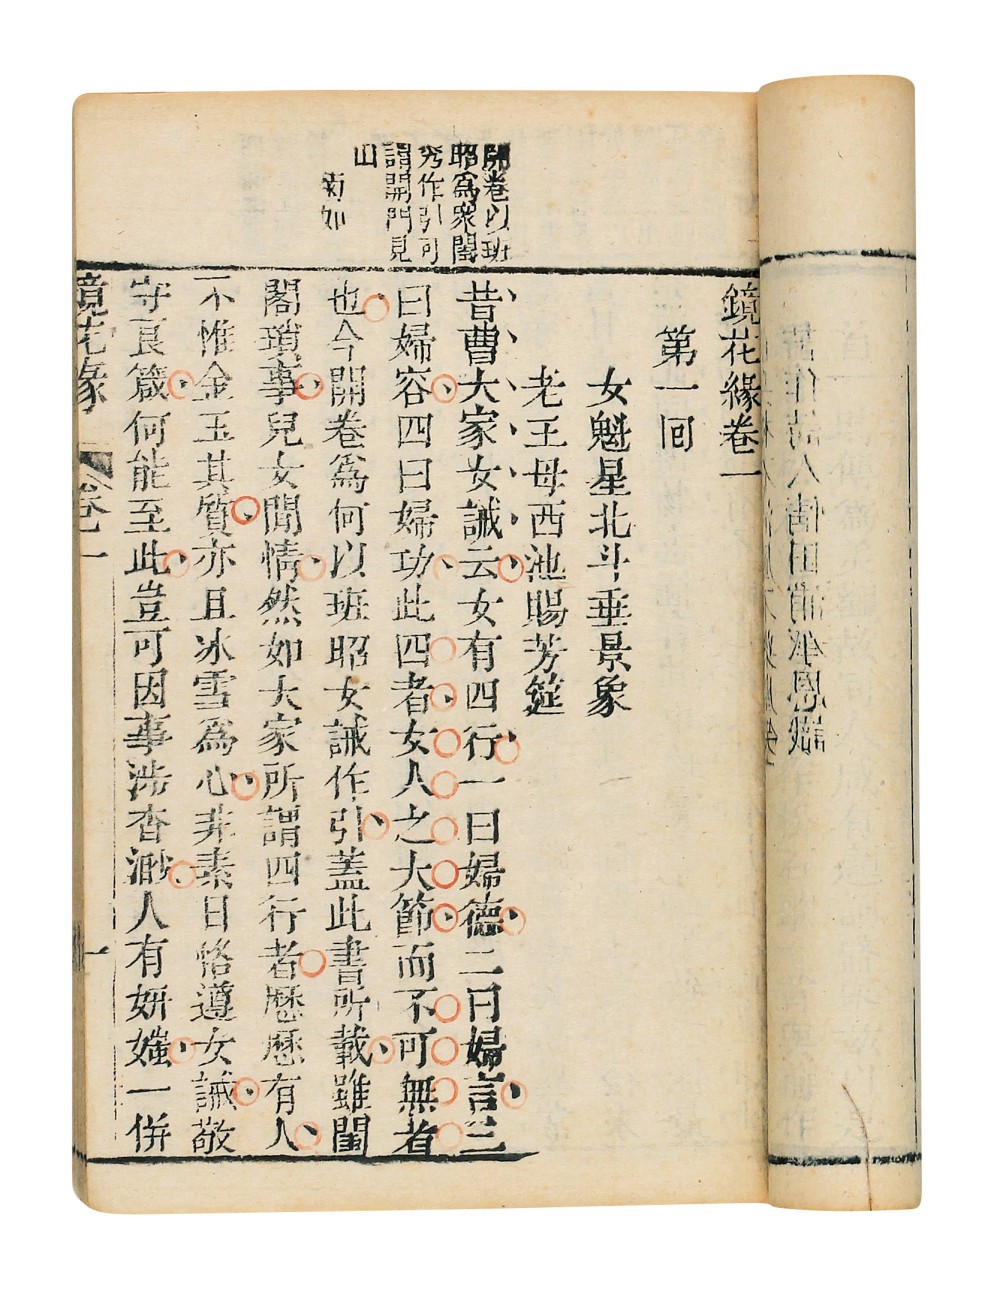 開卷以班
昭爲衆閨
秀作引可
謂開門見
山
南如
鏡花緣卷一
第一回
女魁星北斗垂景象
老王母西池賜芳筵
昔曹大家女誡云女有四行一曰婦德二曰婦言三
曰婦容四曰婦功此四者女人之大節而不可無者
也今開卷爲何以班昭女誡作引蓋此書所載雖閨
閣瑣事兒女閒情然如大家所謂四行者歷歷有人
不惟金玉其質亦且冰雪爲心非素日恪遵女誡敬
守良箴何能至此豈可因事涉杳渺人有妍媸一併
鏡花緣 卷一
一